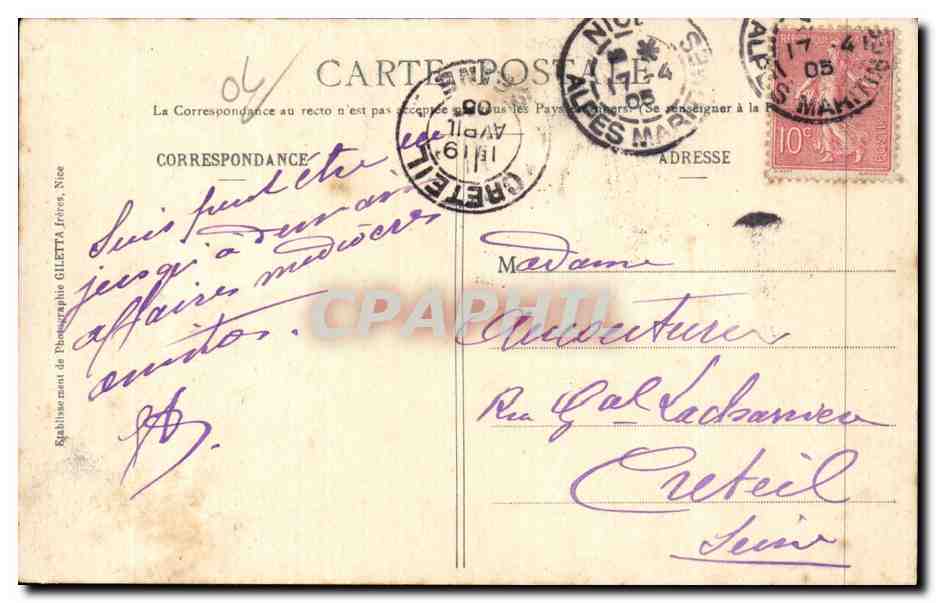 04
CARTE POSTALE
La Correspondance au recto n'est pas acceptée par tous les Pays étrangers. (Se renseigner à la P
CORRESPONDANCE
ADRESSE
CRETEIL
15 19
AVRIL
05
NICE
17 -4
05
ALPES MARITIMES
17 -4
05
ALPES MARITIMES
10c
Suis peut être ici
jusqu'à
affaires médiocres
amitiés.
Madame
Rue Gal Lachanieu
Creteil
Seine
Etablissement de Photographie GILETTA frères, Nice
CPAPHIL